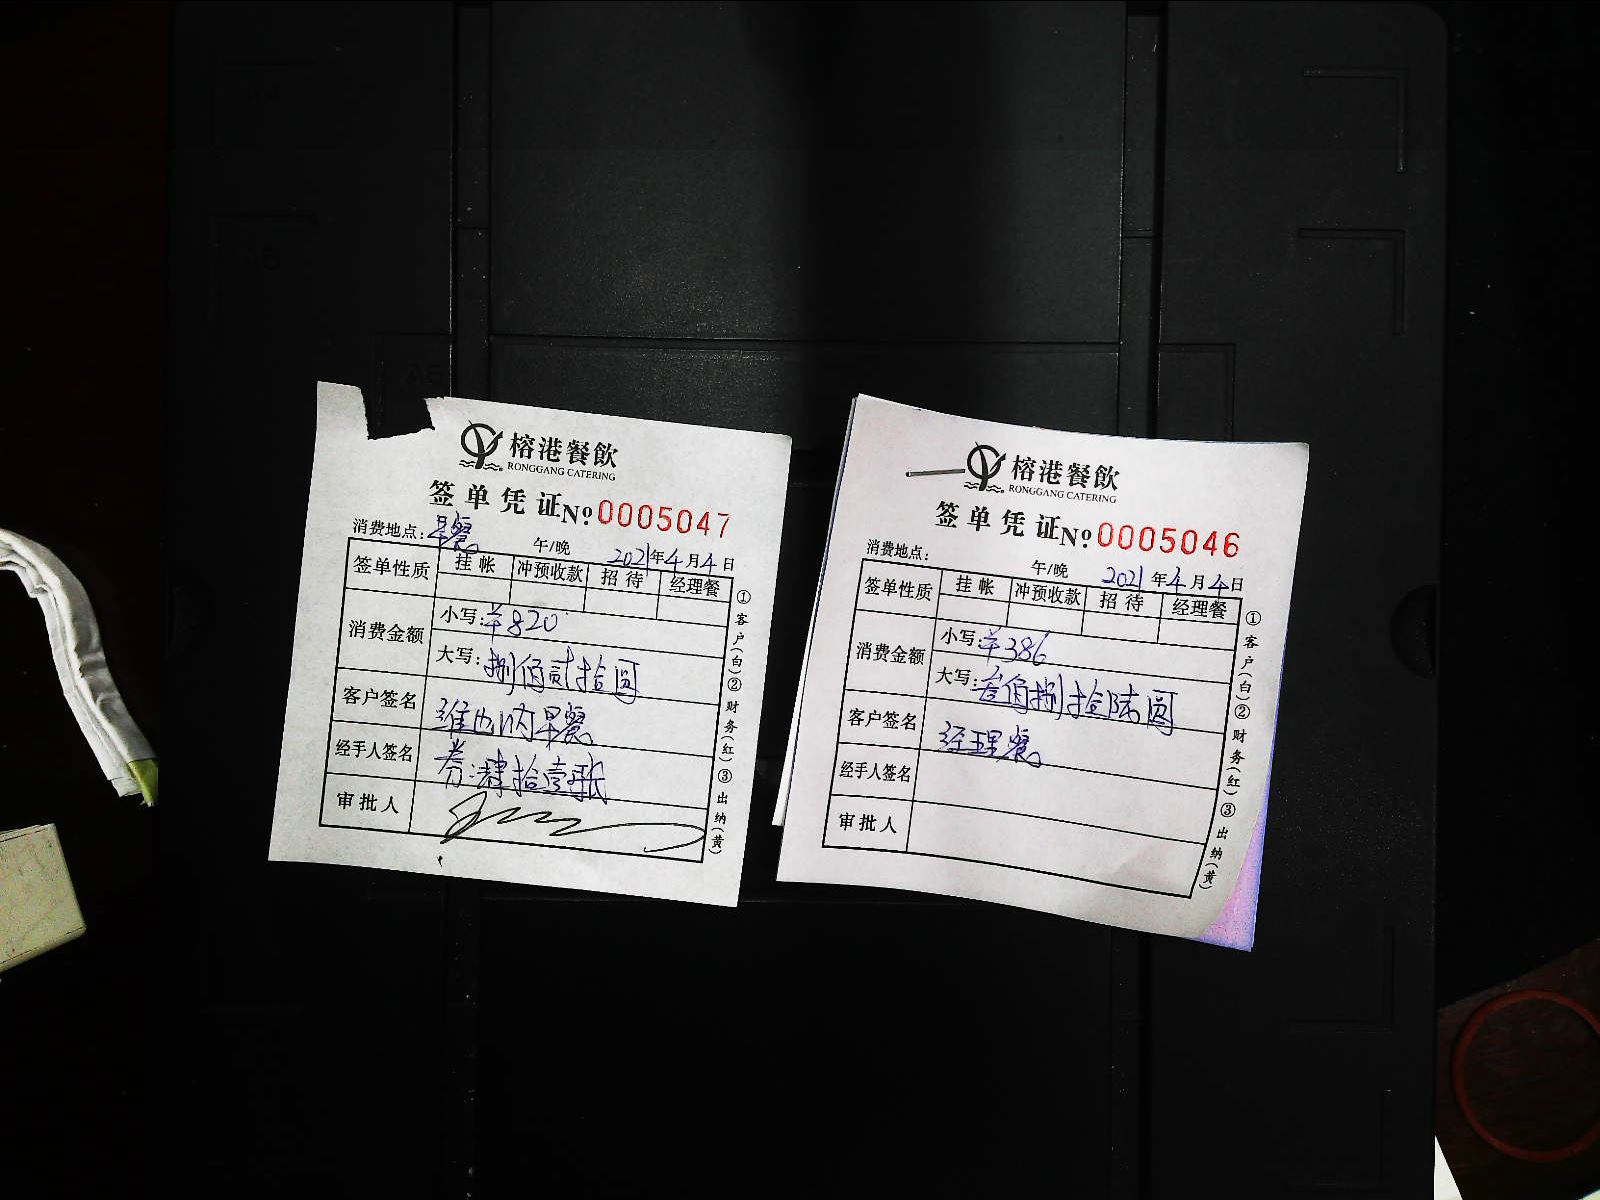 榕港餐飲
RONGGANG CATERING
签单凭证 №0005047
消费地点：早餐 午/晚 2021年4月4日
签单性质 挂帐 冲预收款 招待 经理餐
消费金额 小写：￥820
大写：捌佰贰拾圆
客户签名 维也纳早餐
经手人签名 券肆拾壹张
审批人
①客户(白)②财务(红)③出纳(黄)
榕港餐飲
RONGGANG CATERING
签单凭证 №0005046
消费地点： 午/晚 2021年4月4日
签单性质 挂帐 冲预收款 招待 经理餐
消费金额 小写：￥386
大写：叁佰捌拾陆圆
客户签名 经理餐
经手人签名
审批人
①客户(白)②财务(红)③出纳(黄)